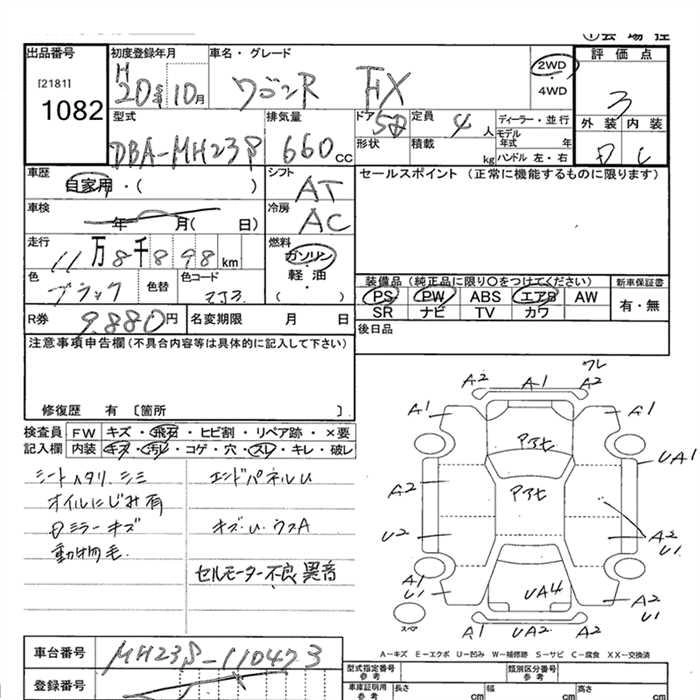 ①会場控
出品番号
[2181]
1082
初度登録年月
H20年10月
車名・グレード
ワゴンR FX
2WD
・
4WD
評価点
3
外装 内装
D C
型式
DBA-MH23S
排気量
660cc
ドア
5D
形状
定員
4人
積載
kg
ディーラー・並行
モデル
年式 年
ハンドル 左・右
車歴
自家用・( )
シフト
AT
セールスポイント (正常に機能するものに限ります)
車検
年 月( 日)
冷房
AC
走行
11万8千898km
燃料
ガソリン
軽・油
( )
色
ブラック
色替
色コード
ZJ3
装備品(純正品に限り〇をつけてください)
PS PW ABS エアB AW
SR ナビ TV カワ
新車保証書
有・無
R券
9,880円
名変期限 月 日
後日品
注意事項申告欄(不具合内容等は具体的に記入して下さい)
修復歴 有〔箇所 〕
検査員
記入欄
FW キズ・飛石・ヒビ割・リペア跡・×要
内装 キズ・汚レ・コゲ・穴・スレ・キレ・破レ
シートヘタリ、シミ
オイルにじみ有
Dミラーキズ
動物毛
エンドパネルU
キズ・U・ウスA
セルモーター不良 異音
ワレ
A2 A1 A2
A1 A1
アカヒ
UA1
アカヒ
A2
U2
A2
U1
A1
U1
UA4
A2
U1
スペア
A1 UA2 A2
A-キズ E-エクボ U-凹み W-補修跡 S-サビ C-腐食 XX-交換済
車台番号
MH23S-110473
登録番号
型式指定番号
参考
類別区分番号
参考
車庫証明用
参考
長さ cm
幅 cm
高さ cm